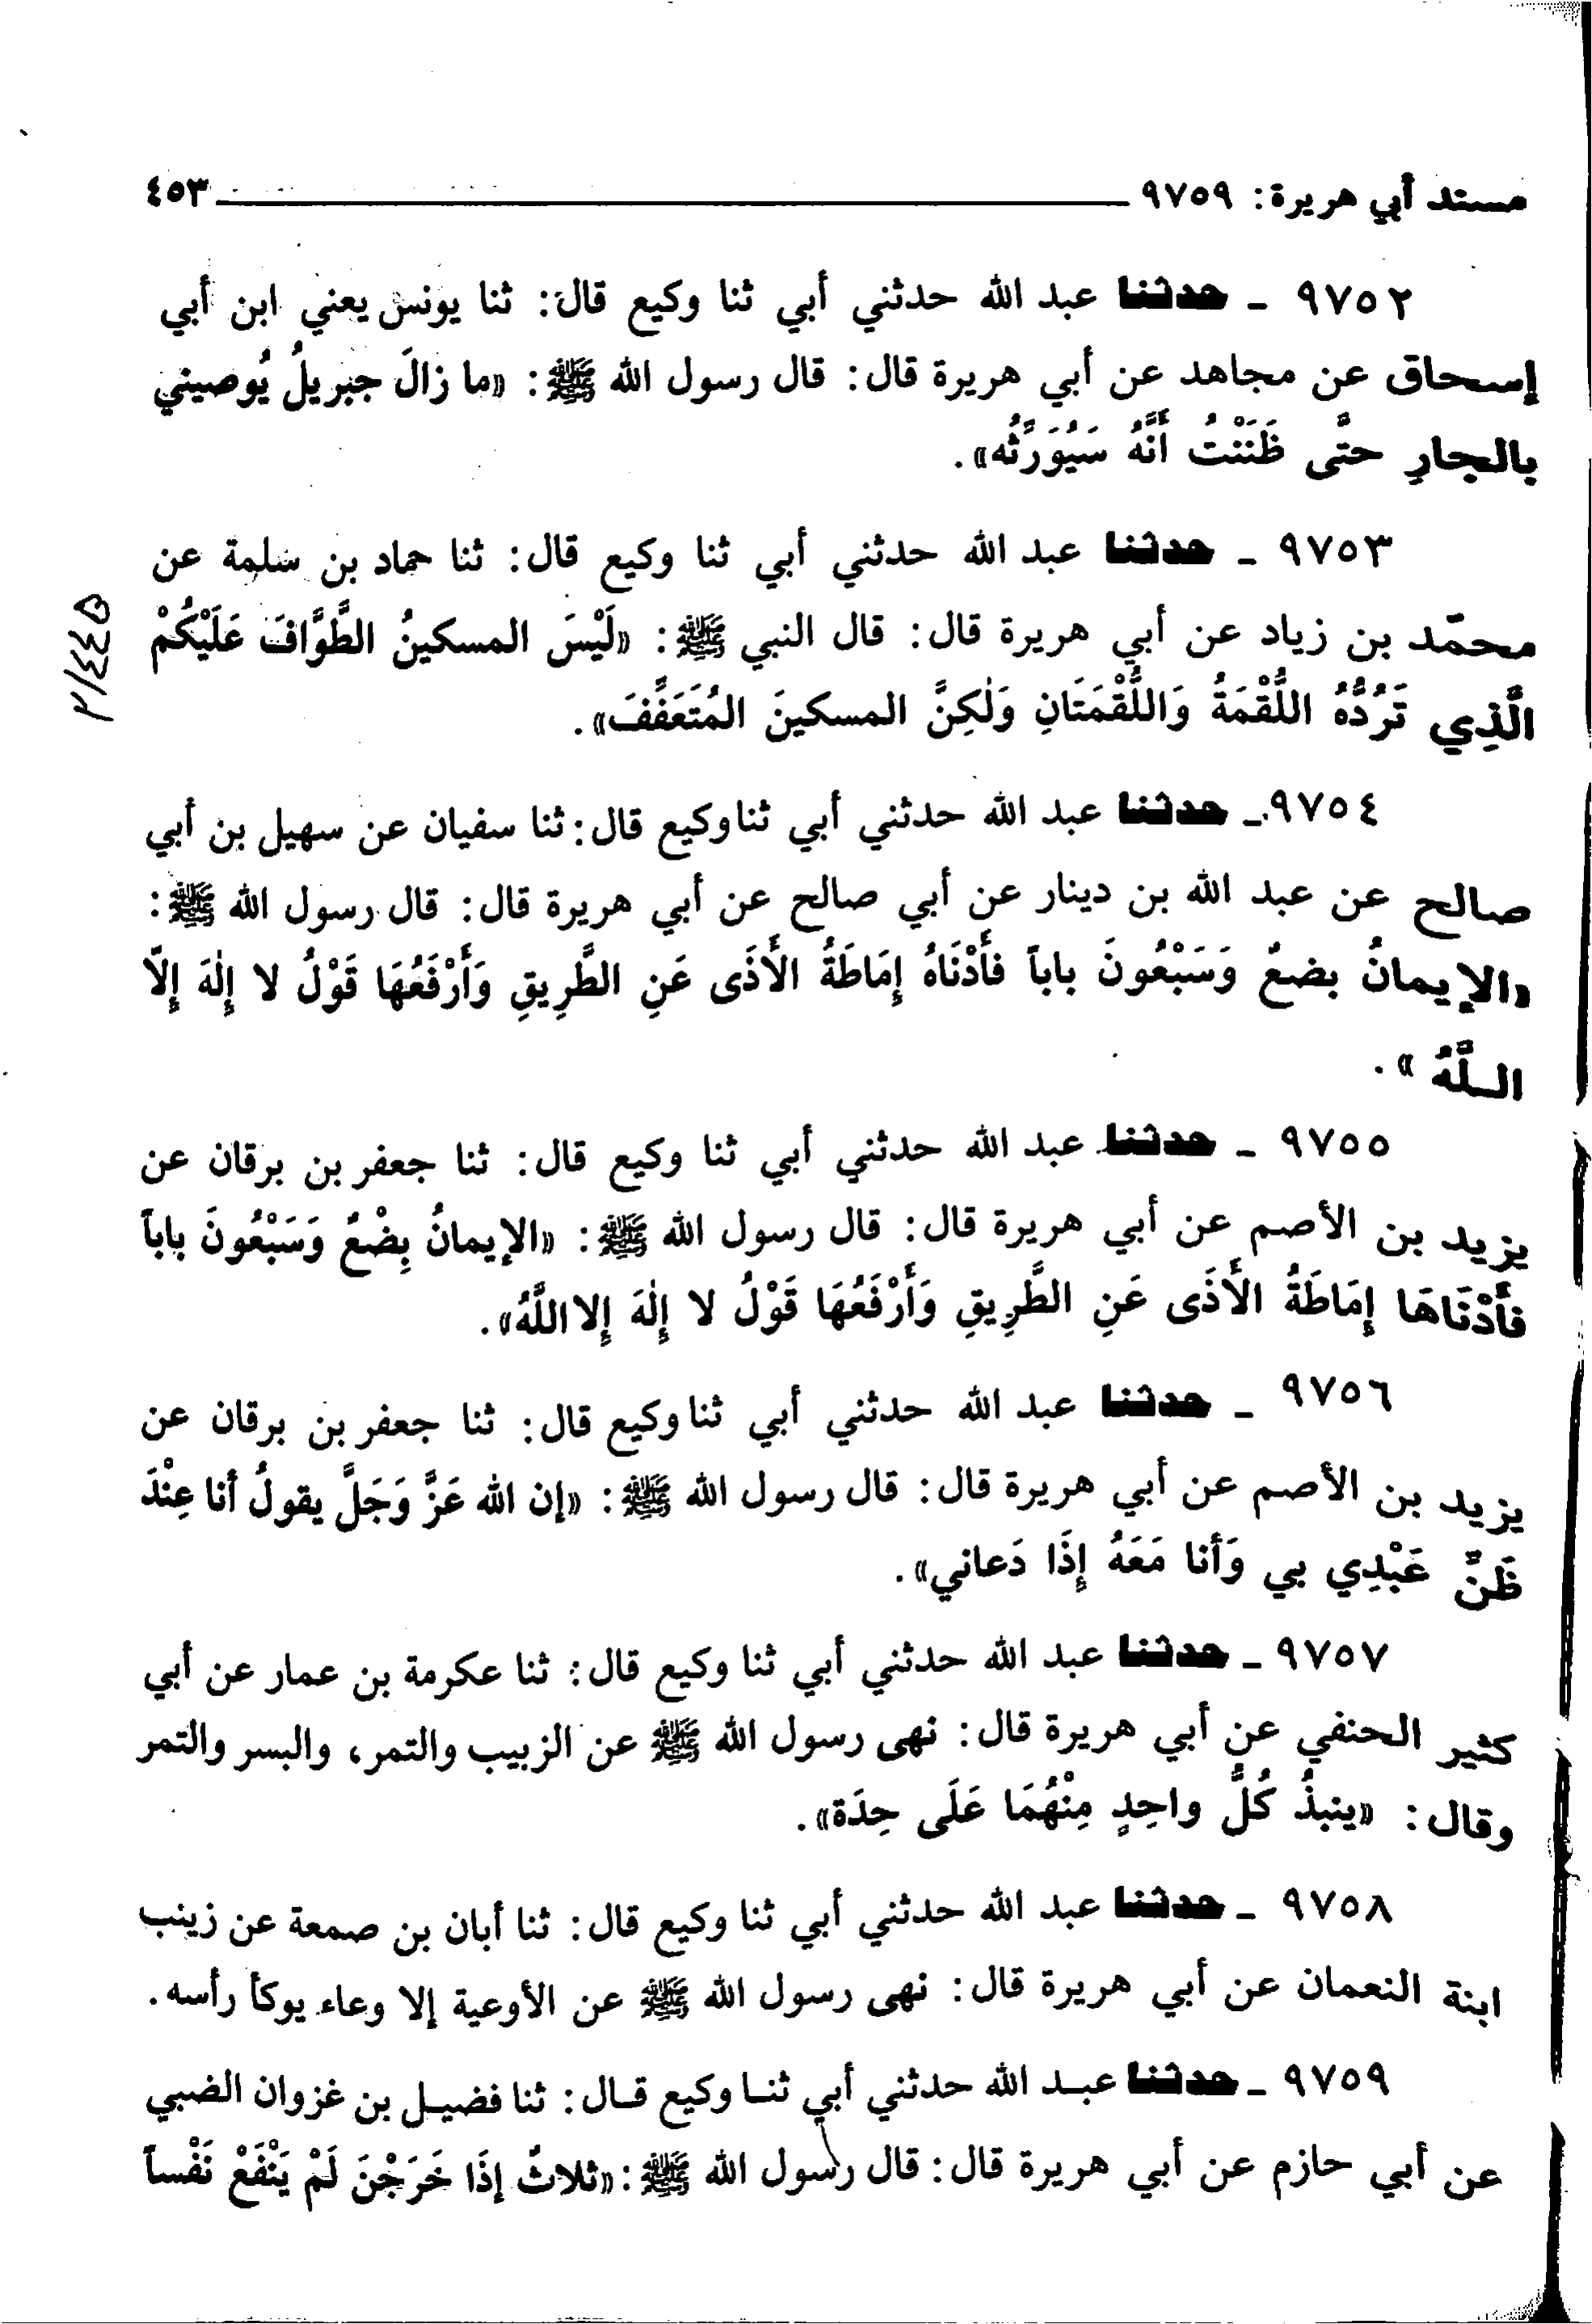 مسند أبي هريرة: ٩٧٥٩ ٤٥٣
٩٧٥٢ - حدثنا عبد الله حدثني أبي ثنا وكيع قال: ثنا يونس يعني ابن أبي
إسحاق عن مجاهد عن أبي هريرة قال: قال رسول الله ﷺ: «ما زالَ جبريلُ يُوصيني
بالجارِ حتَّى ظَنَنْتُ أَنَّهُ سَيُوَرِّثُه».
٩٧٥٣ - حدثنا عبد الله حدثني أبي ثنا وكيع قال: ثنا حماد بن سلمة عن
محمّد بن زياد عن أبي هريرة قال: قال النبي ﷺ: «لَيْسَ المسكينُ الطَّوَّافَ عَلَيْكُمْ
الَّذِي تَرُدُّهُ اللُّقْمَةُ وَاللُّقْمَتَانِ وَلٰكِنَّ المسكينَ المُتَعَفِّفَ».
٢/٤٤٥
٩٧٥٤ - حدثنا عبد الله حدثني أبي ثنا وكيع قال: ثنا سفيان عن سهيل بن أبي
صالح عن عبد الله بن دينار عن أبي صالح عن أبي هريرة قال: قال رسول الله ﷺ:
«الإيمانُ بضعٌ وَسَبْعُونَ باباً فأَدْنَاهُ إِمَاطَةُ الأَذَى عَنِ الطَّرِيقِ وَأَرْفَعُهَا قَوْلُ لا إِلٰهَ إِلَّا
اللَّهُ».
٩٧٥٥ - حدثنا عبد الله حدثني أبي ثنا وكيع قال: ثنا جعفر بن برقان عن
يزيد بن الأصم عن أبي هريرة قال: قال رسول الله ﷺ: «الإيمانُ بِضْعٌ وَسَبْعُونَ باباً
فأَدْنَاهَا إِمَاطَةُ الأَذَى عَنِ الطَّرِيقِ وَأَرْفَعُهَا قَوْلُ لا إِلٰهَ إلا اللَّهُ».
٩٧٥٦ - حدثنا عبد الله حدثني أبي ثنا وكيع قال: ثنا جعفر بن برقان عن
يزيد بن الأصم عن أبي هريرة قال: قال رسول الله ﷺ: «إن الله عَزَّ وَجَلَّ يقولُ أنا عِنْدَ
ظَنِّ عَبْدِي بي وَأنا مَعَهُ إِذَا دَعاني».
٩٧٥٧ - حدثنا عبد الله حدثني أبي ثنا وكيع قال: ثنا عكرمة بن عمار عن أبي
كثير الحنفي عن أبي هريرة قال: نهى رسول الله ﷺ عن الزبيب والتمر، والبسر والتمر
وقال: «ينبذُ كُلُّ واحِدٍ مِنْهُمَا عَلَى حِدَة».
٩٧٥٨ - حدثنا عبد الله حدثني أبي ثنا وكيع قال: ثنا أبان بن صمعة عن زينب
ابنة النعمان عن أبي هريرة قال: نهى رسول الله ﷺ عن الأوعية إلا وعاء يوكأ رأسه.
٩٧٥٩ - حدثنا عبد الله حدثني أبي ثنا وكيع قال: ثنا فضيل بن غزوان الضبي
عن أبي حازم عن أبي هريرة قال: قال رسول الله ﷺ: «ثلاثٌ إِذَا خَرَجْنَ لَمْ يَنْفَعْ نَفْساً